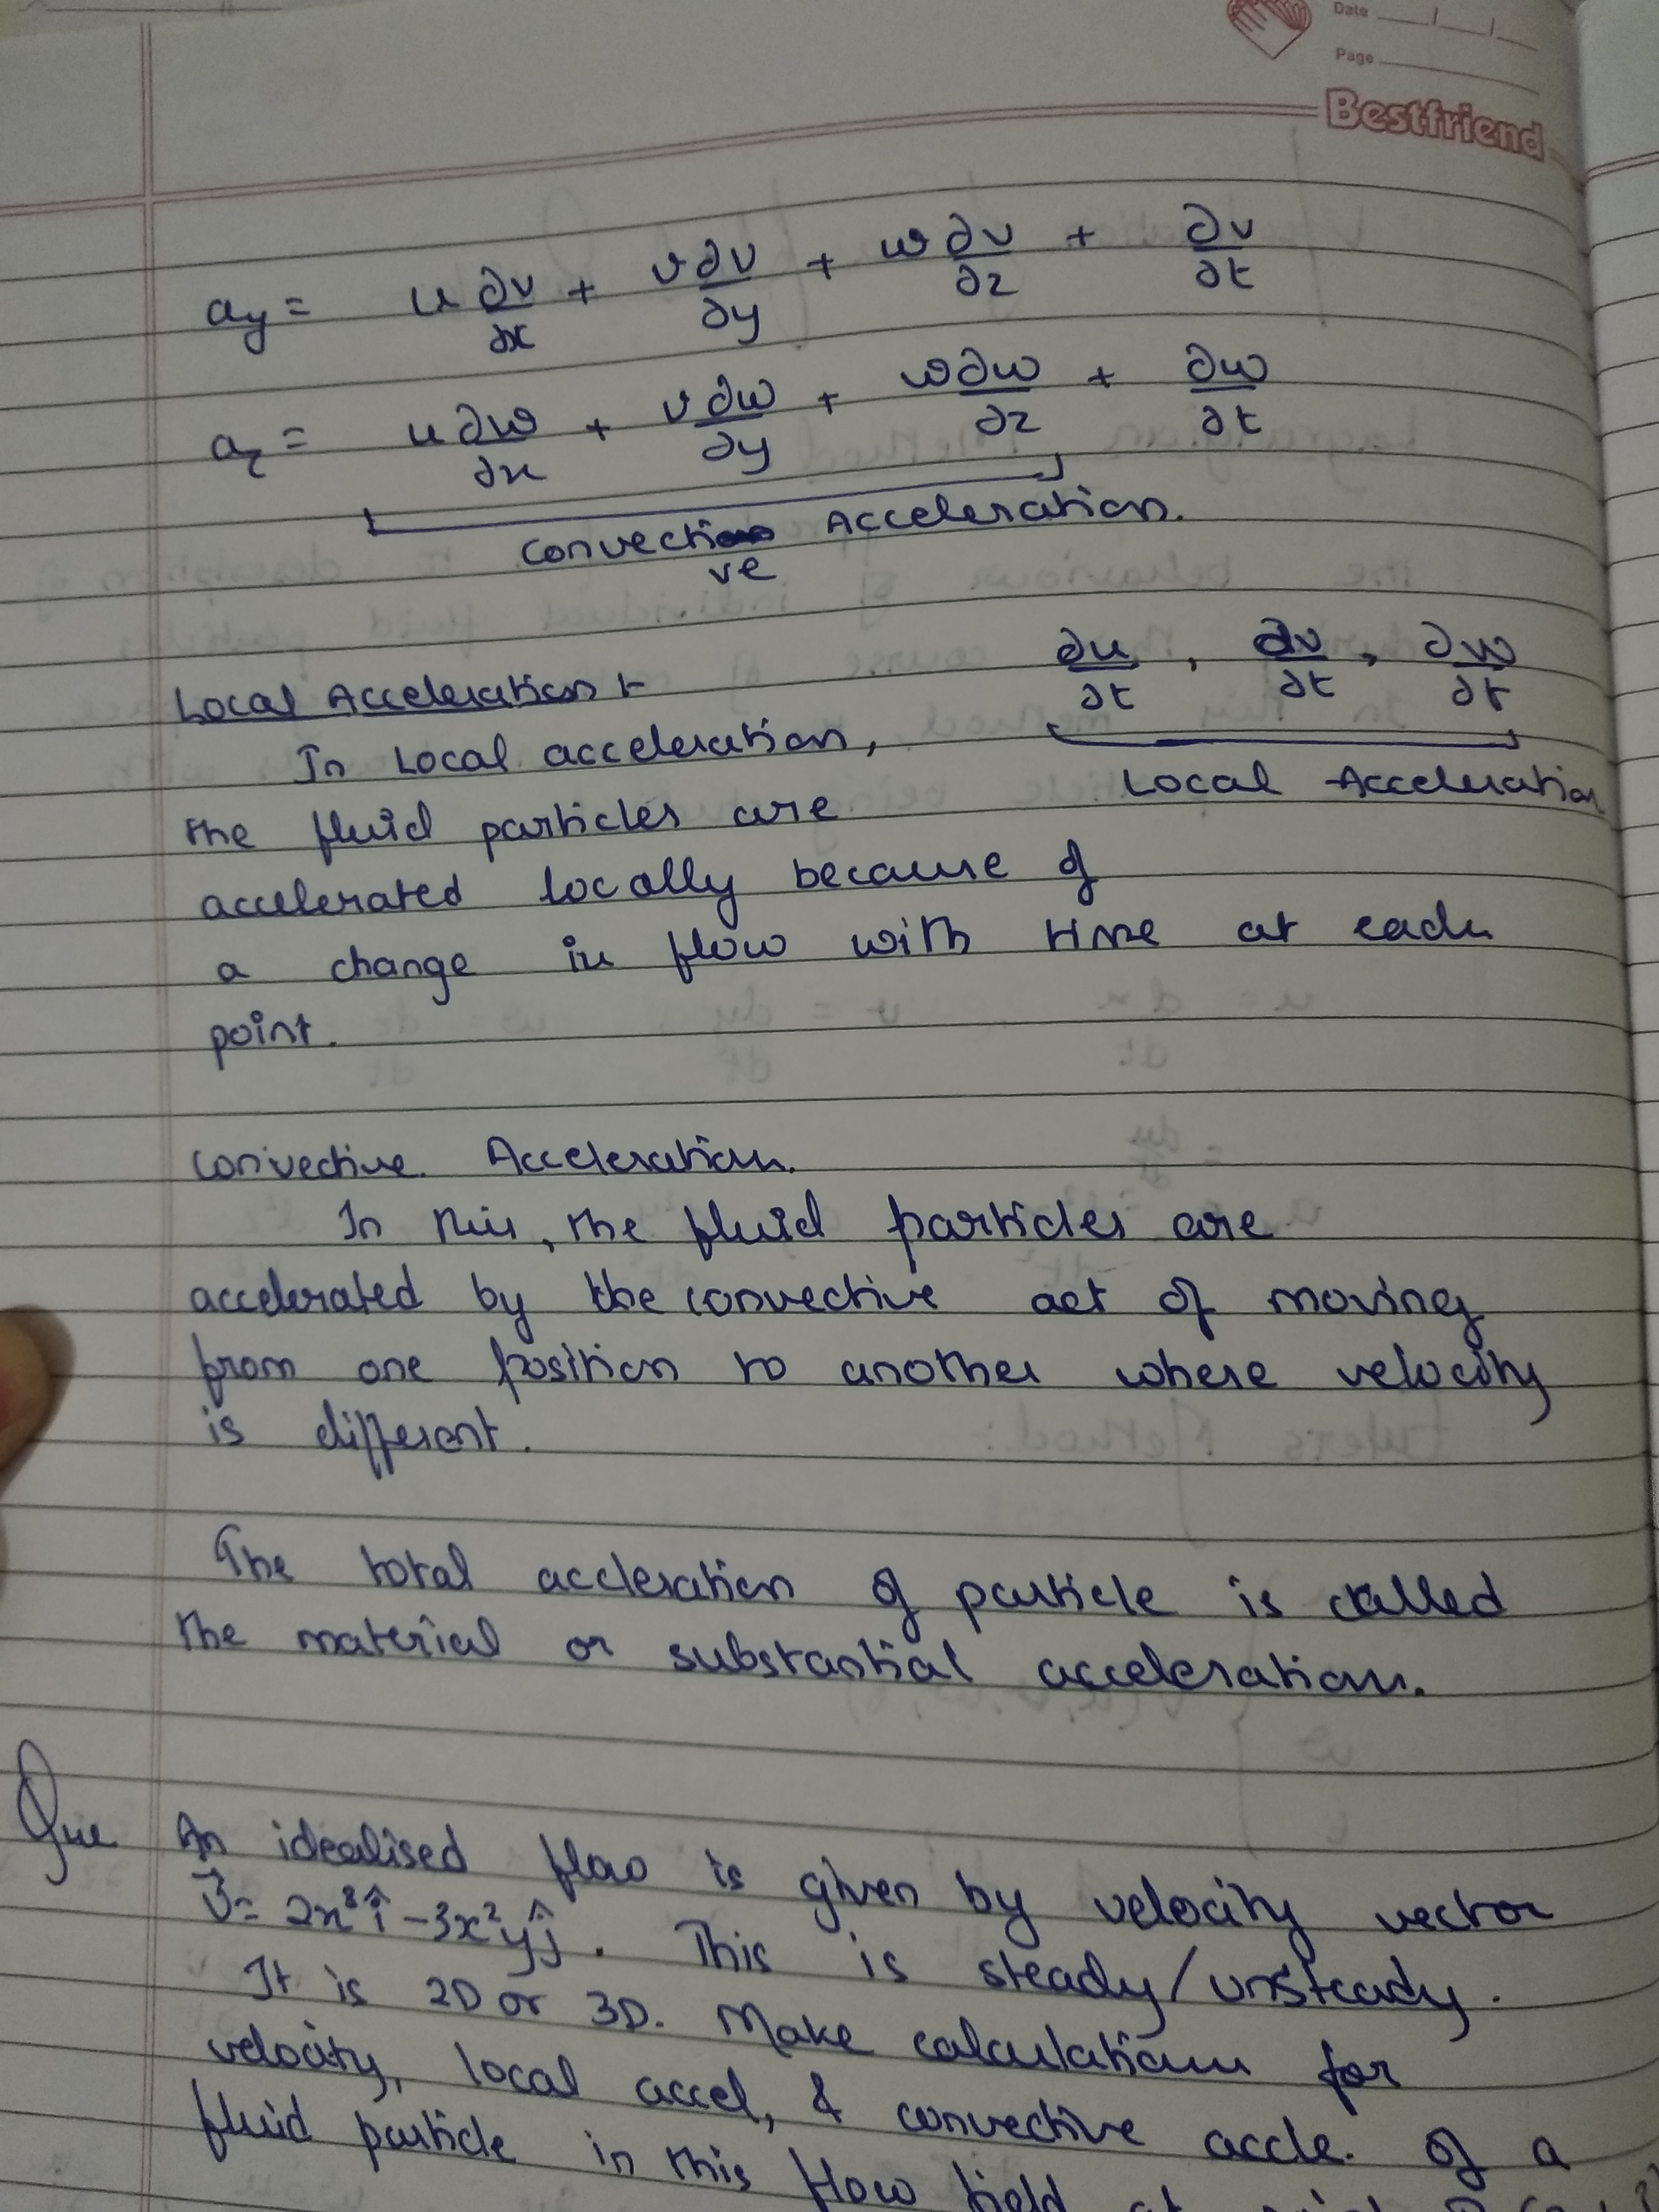 Date
Page
Bestfriend
ay = u ∂v/∂x + v ∂v/∂y + w ∂v/∂z + ∂v/∂t
az = u ∂w/∂x + v ∂w/∂y + w ∂w/∂z + ∂w/∂t
convective Acceleration.
∂u/∂t , ∂v/∂t , ∂w/∂t
Local Acceleration :-
In Local acceleration,
Local Acceleration
the fluid particles are
accelerated locally because of
a change in flow with time at each
point.
convective Acceleration.
In this, the fluid particles are
accelerated by the convective act of moving
from one position to another where velocity
is different.
The total accleration of particle is called
the material or substantial acceleration.
Que An idealised flow is given by velocity vector
V⃗ = 2x³î - 3x²yĵ . This is steady/unsteady.
It is 2D or 3D. Make calculations for
velocity, local accel, & convective accle. of a
fluid particle in this flow field at